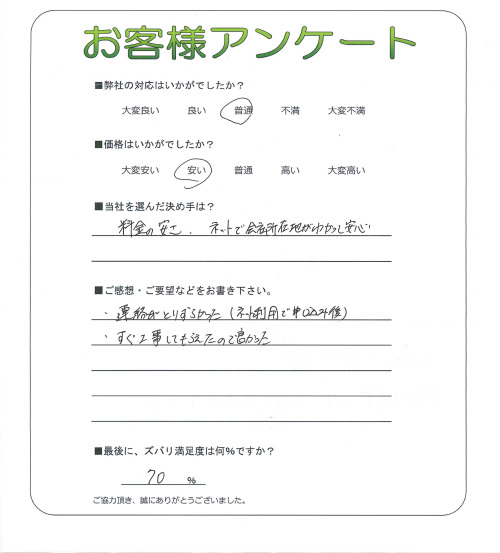 お客様アンケート
■弊社の対応はいかがでしたか？
大変良い 良い 普通 不満 大変不満
■価格はいかがでしたか？
大変安い 安い 普通 高い 大変高い
■当社を選んだ決め手は？
料金の安さ、ネットで会社所在地がわかり安心
■ご感想・ご要望などをお書き下さい。
・連絡がとりずらかった（ネット利用で申し込み後）
・すぐ工事してもらえたので良かった
■最後に、ズバリ満足度は何%ですか？
70 %
ご協力頂き、誠にありがとうございました。